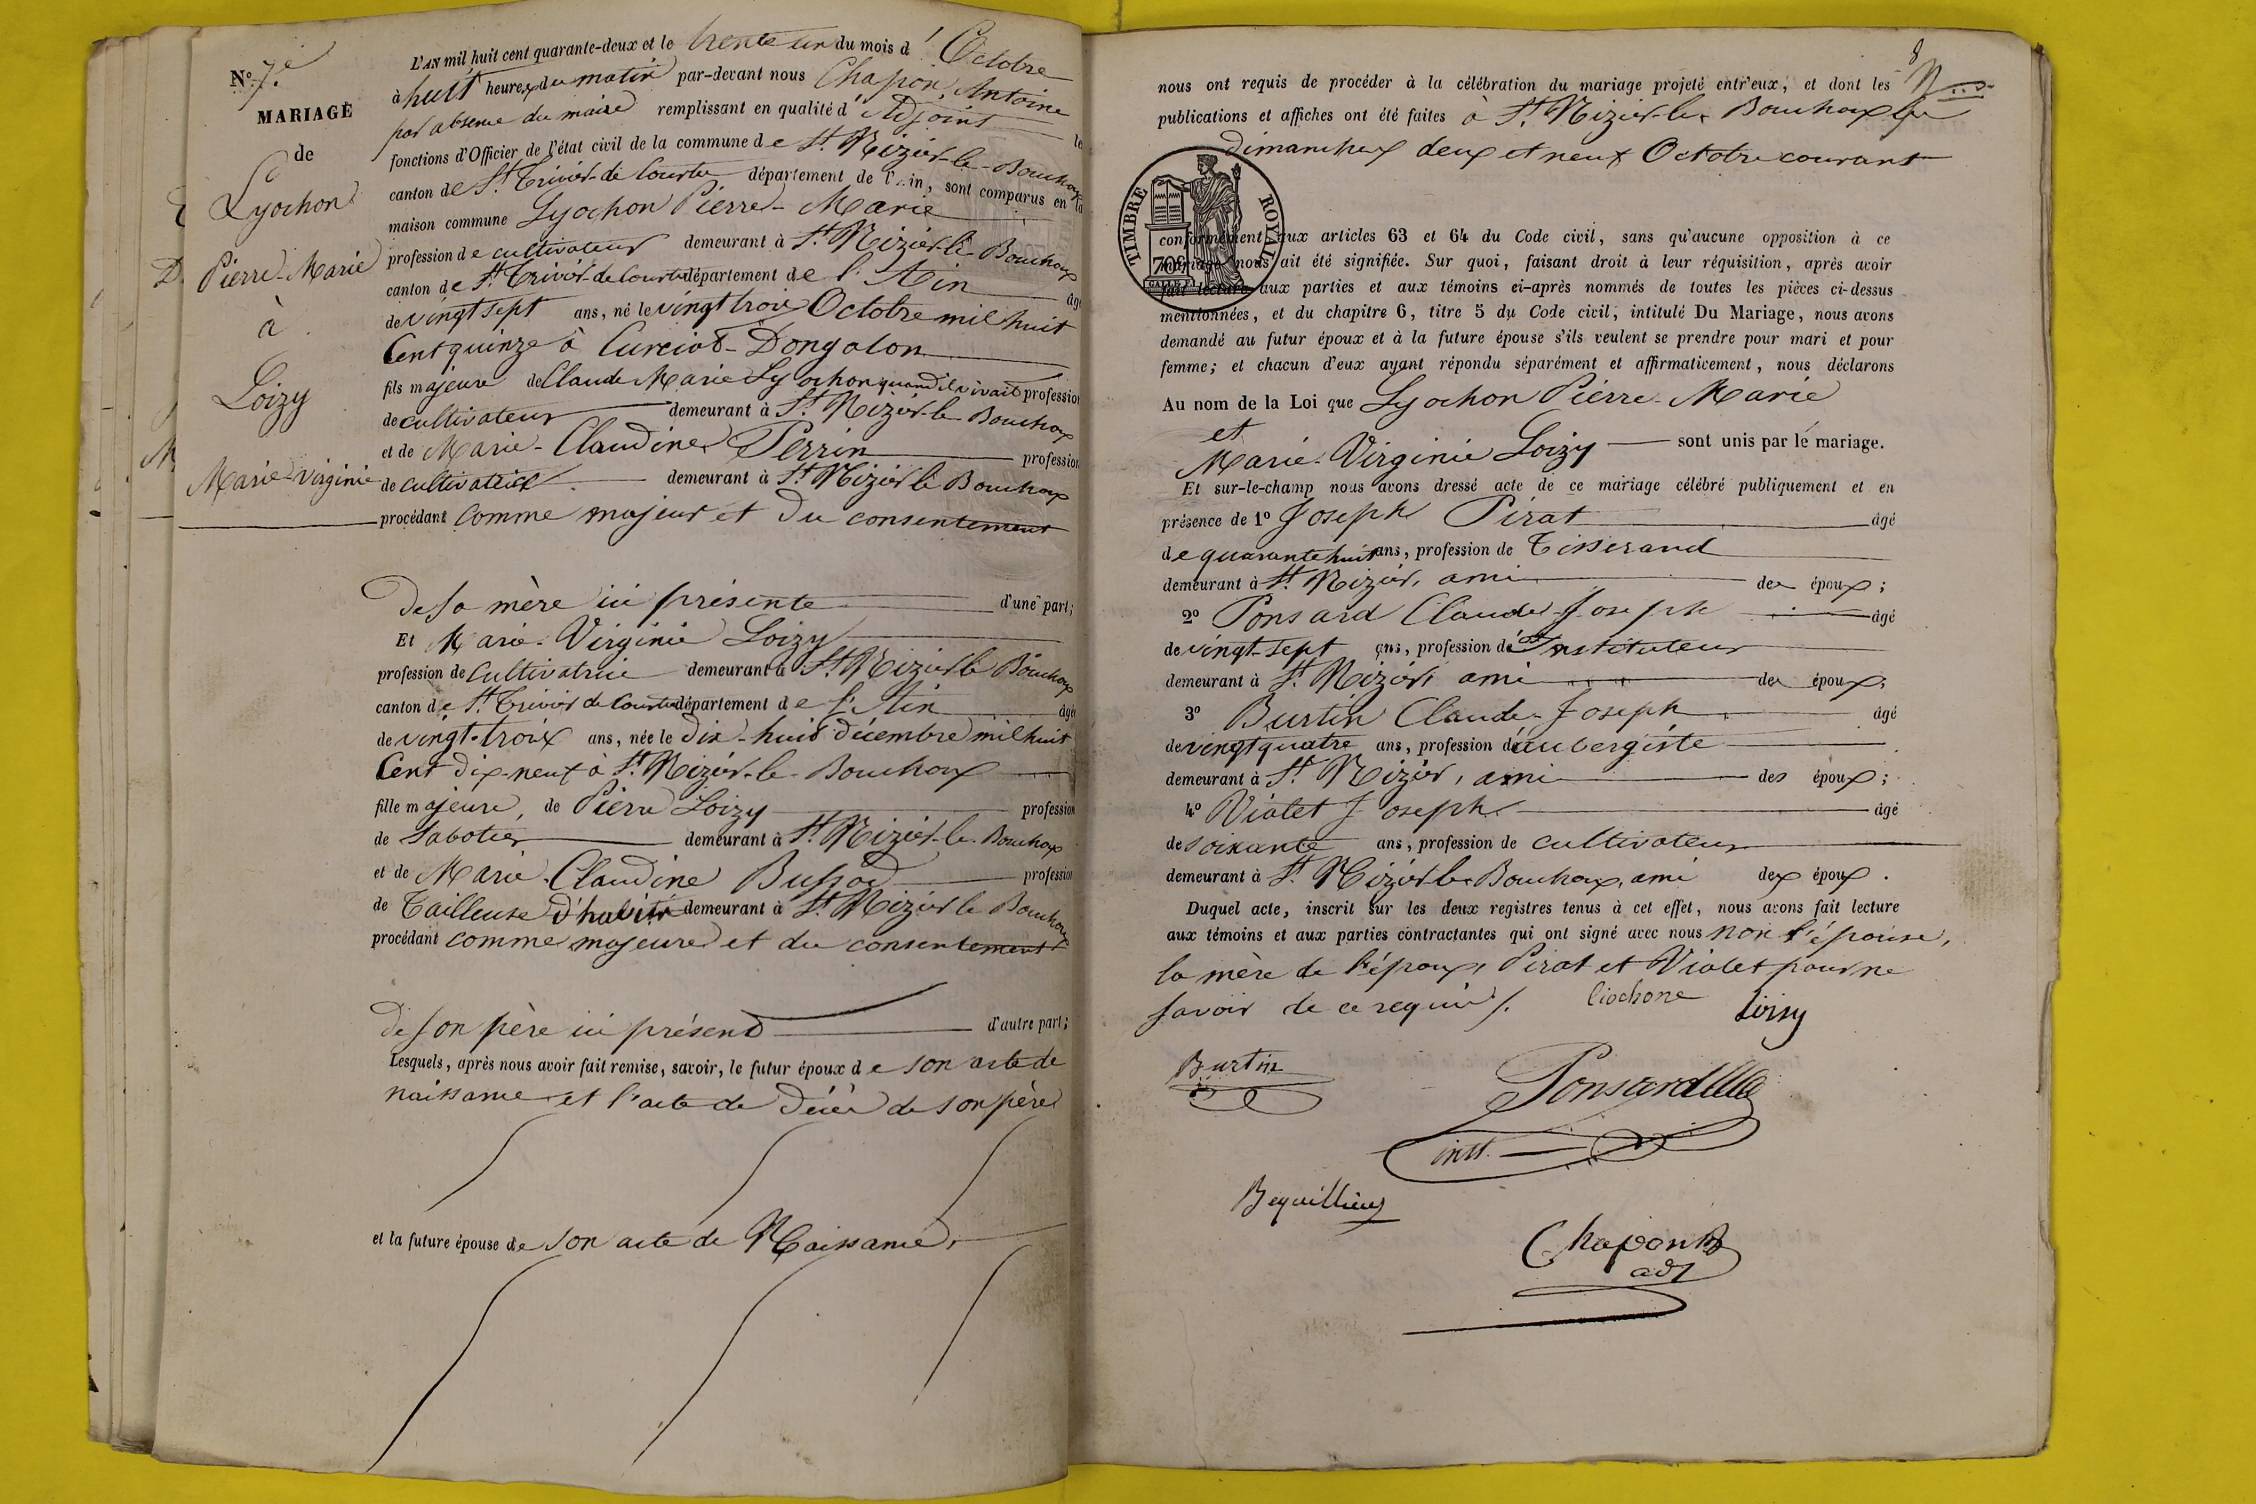 N.° 7.e
MARIAGE
de
Lyochon
Pierre-Marie
à
Loizy
Marie-virginie
L'AN mil huit cent quarante-deux et le trente un du mois d'Octobre
à huit heures du matin par-devant nous Chapon, Antoine
par absence du maire remplissant en qualité d'Adjoint les
fonctions d'Officier de l'état civil de la commune de St. Nizier-le-Bouchoux
canton de St. Trivier-de Courtes département de l'Ain, sont comparus en la
maison commune Lyochon Pierre-Marie
profession de cultivateur demeurant à St. Nizier-le Bouchoux
canton de St. Trivier-de Courtes département de l'Ain âgé
de vingt sept ans, né le vingt trois Octobre mil huit
Cent quinze à Curciat-Dongalon
fils majeure de Claude Marie Lyochon quand il vivait profession
de cultivateur demeurant à St. Nizier-le Bouchoux
et de Marie-Claudine Perrin profession
de cultivatrice demeurant à St. Nizier le Bouchoux
procédant comme majeur et du consentement
De sa mère ici présente d'une part;
Et Marie-Virginie Loizy
profession de cultivatrice demeurant à St. Nizier le Bouchoux
canton de St. Trivier de Courtes département de l'Ain âgée
de vingt-trois ans, née le Dix-huit décembre mil huit
Cent dix-neuf à St. Nizier-le-Bouchoux
fille majeure, de Pierre Loizy profession
de Sabotier demeurant à St. Nizier-le-Bouchoux
et de Marie-Claudine Bussod profession
de Tailleuse d'habits demeurant à St. Nizier le Bouchoux
procédant comme majeure et du consentement
de son père ici présent d'autre part;
Lesquels, après nous avoir fait remise, savoir, le futur époux de son acte de
naissance et l'acte de décès de son père
et la future épouse de son acte de Naissance,
8
nous ont requis de procéder à la célébration du mariage projeté entr'eux, et dont les
publications et affiches ont été faites à St. Nizier-le-Bouchoux les
dimanches deux et neuf Octobre courant
TIMBRE ROYAL
70c
conformément aux articles 63 et 64 du Code civil, sans qu'aucune opposition à ce
mariage nous ait été signifiée. Sur quoi, faisant droit à leur réquisition, après avoir
fait lecture aux parties et aux témoins ci-après nommés de toutes les pièces ci-dessus
mentionnées, et du chapitre 6, titre 5 du Code civil, intitulé Du Mariage, nous avons
demandé au futur époux et à la future épouse s'ils veulent se prendre pour mari et pour
femme; et chacun d'eux ayant répondu séparément et affirmativement, nous déclarons
Au nom de la Loi que Lyochon Pierre-Marie
et
Marie-Virginie Loizy sont unis par le mariage.
Et sur-le-champ nous avons dressé acte de ce mariage célébré publiquement et en
présence de 1° Joseph Pirat âgé
de quarante huit ans, profession de Tisserand
demeurant à St. Nizier, ami des époux;
2° Ponsard Claude-Joseph âgé
de vingt-sept ans, profession d'Instituteur
demeurant à St. Nizier, ami des époux;
3° Burtin Claude-Joseph âgé
de vingt quatre ans, profession d'aubergiste
demeurant à St. Nizier, ami des époux;
4° Violet Joseph âgé
de soixante ans, profession de cultivateur
demeurant à St. Nizier-le-Bouchoux, ami des époux.
Duquel acte, inscrit sur les deux registres tenus à cet effet, nous avons fait lecture
aux témoins et aux parties contractantes qui ont signé avec nous non l'épouse,
la mère de l'époux, Pirat et Violet pour ne
savoir de ce requis/.
liochone
Loizy
Burtin
Ponsard
inst.
Bequillieu
Chapon
adj